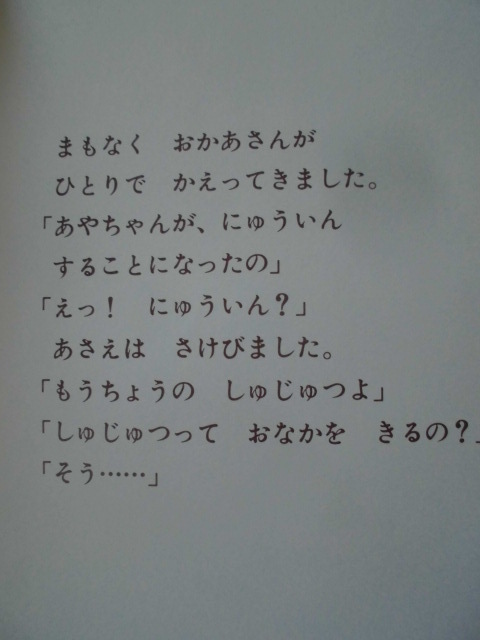 まもなく　おかあさんが
ひとりで　かえってきました。
「あやちゃんが、にゅういん
することになったの」
「えっ！　にゅういん？」
あさえは　さけびました。
「もうちょうの　しゅじゅつよ」
「しゅじゅつって　おなかを　きるの？」
「そう……」